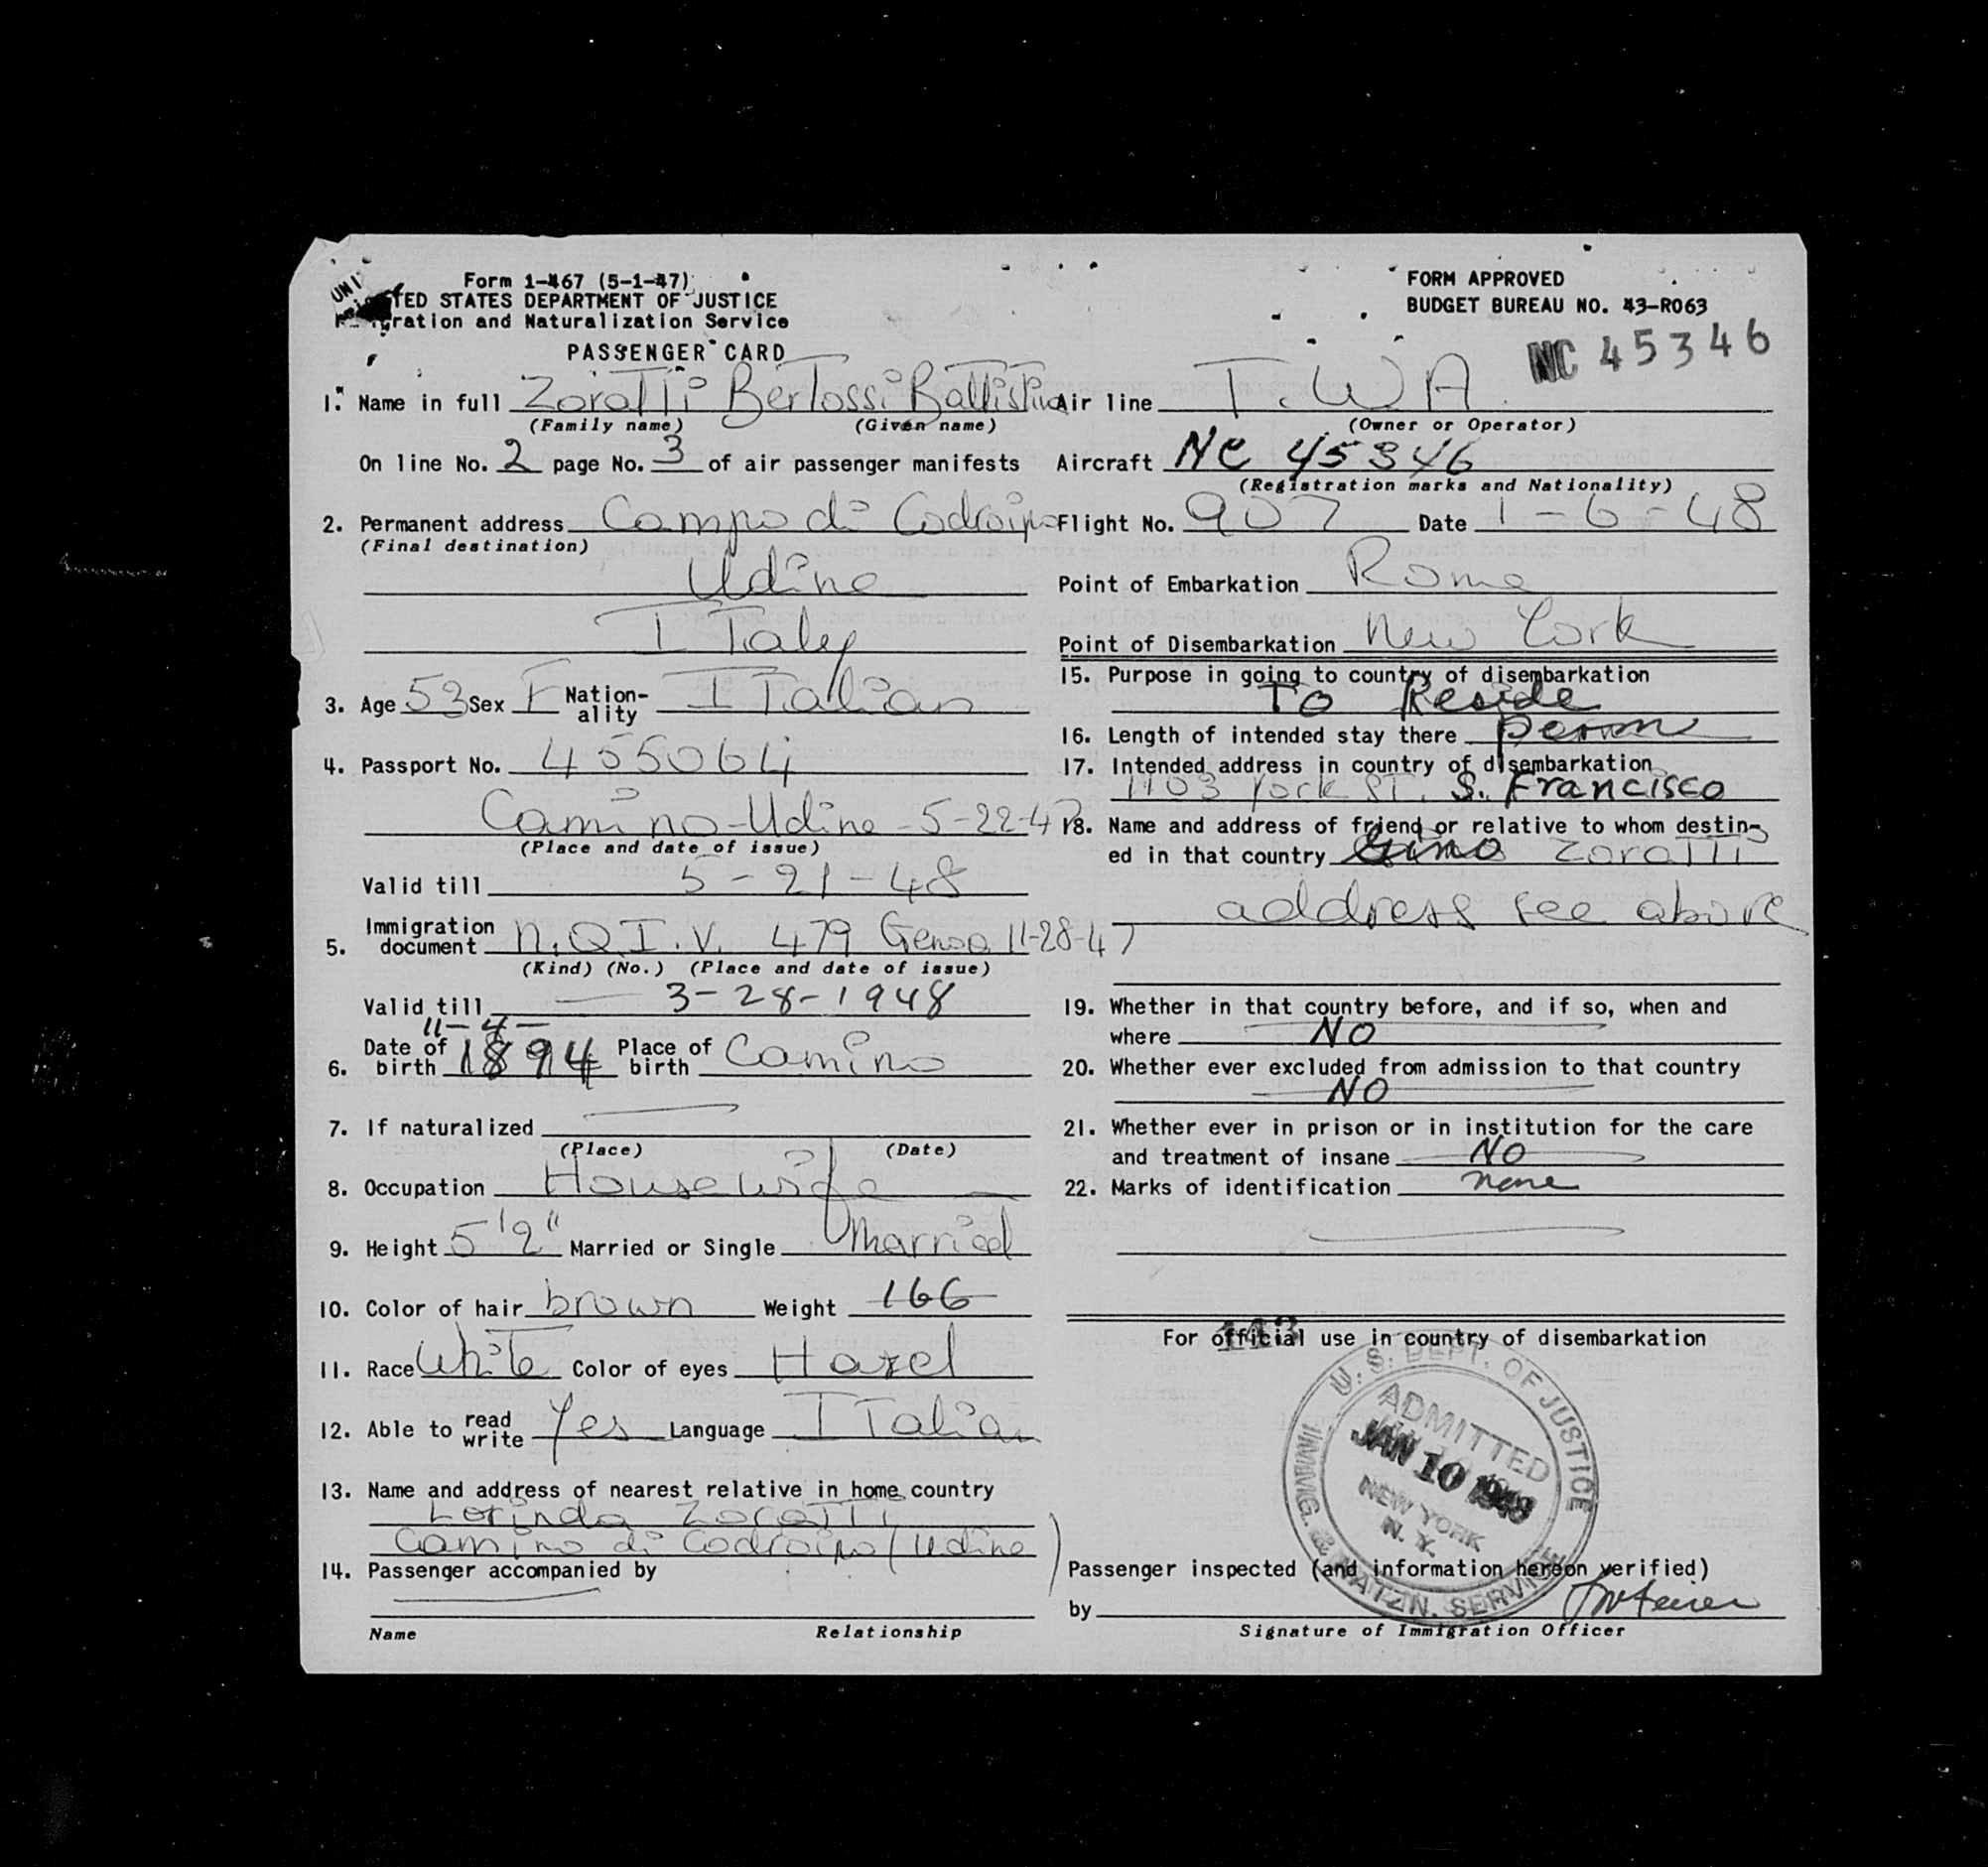 Form 1-467 (5-1-47)
UNITED STATES DEPARTMENT OF JUSTICE
ration and Naturalization Service
PASSENGER CARD
FORM APPROVED
BUDGET BUREAU NO. 43-R063
NC 45346
1. Name in full Zoratti Bertossi Battistina
(Family name) (Given name)
On line No. 2 page No. 3 of air passenger manifests
2. Permanent address Campo di Codroipo
(Final destination)
Udine
Italy
3. Age 53 Sex F Nation-ality Italian
4. Passport No. 455064
Camino-Udine - 5-22-47
(Place and date of issue)
Valid till 5-21-48
5. Immigration document N.Q.I.V. 479 Genoa 11-28-47
(Kind) (No.) (Place and date of issue)
Valid till 3-28-1948
11-4-
6. Date of birth 1894 Place of birth Camino
7. If naturalized
(Place) (Date)
8. Occupation Housewife
9. Height 5'2" Married or Single Married
10. Color of hair brown Weight 166
11. Race White Color of eyes Hazel
12. Able to read write Yes Language Italian
13. Name and address of nearest relative in home country
Lorinda Zoratti
Camino di Codroipo (Udine)
14. Passenger accompanied by
Name Relationship
Air line T.W.A.
(Owner or Operator)
Aircraft NC 45346
(Registration marks and Nationality)
Flight No. 907 Date 1-6-48
Point of Embarkation Rome
Point of Disembarkation New York
15. Purpose in going to country of disembarkation
To Reside
16. Length of intended stay there perm
17. Intended address in country of disembarkation
1103 York ST. S. Francisco
18. Name and address of friend or relative to whom destin-
ed in that country Gino Zoratti
address see above
19. Whether in that country before, and if so, when and
where NO
20. Whether ever excluded from admission to that country
NO
21. Whether ever in prison or in institution for the care
and treatment of insane NO
22. Marks of identification none
For official use in country of disembarkation
143
U. S. DEPT. OF JUSTICE
ADMITTED
JAN 10 1948
NEW YORK
N. Y.
IMMIG. & NATZN. SERVICE
Passenger inspected (and information hereon verified)
by
Signature of Immigration Officer